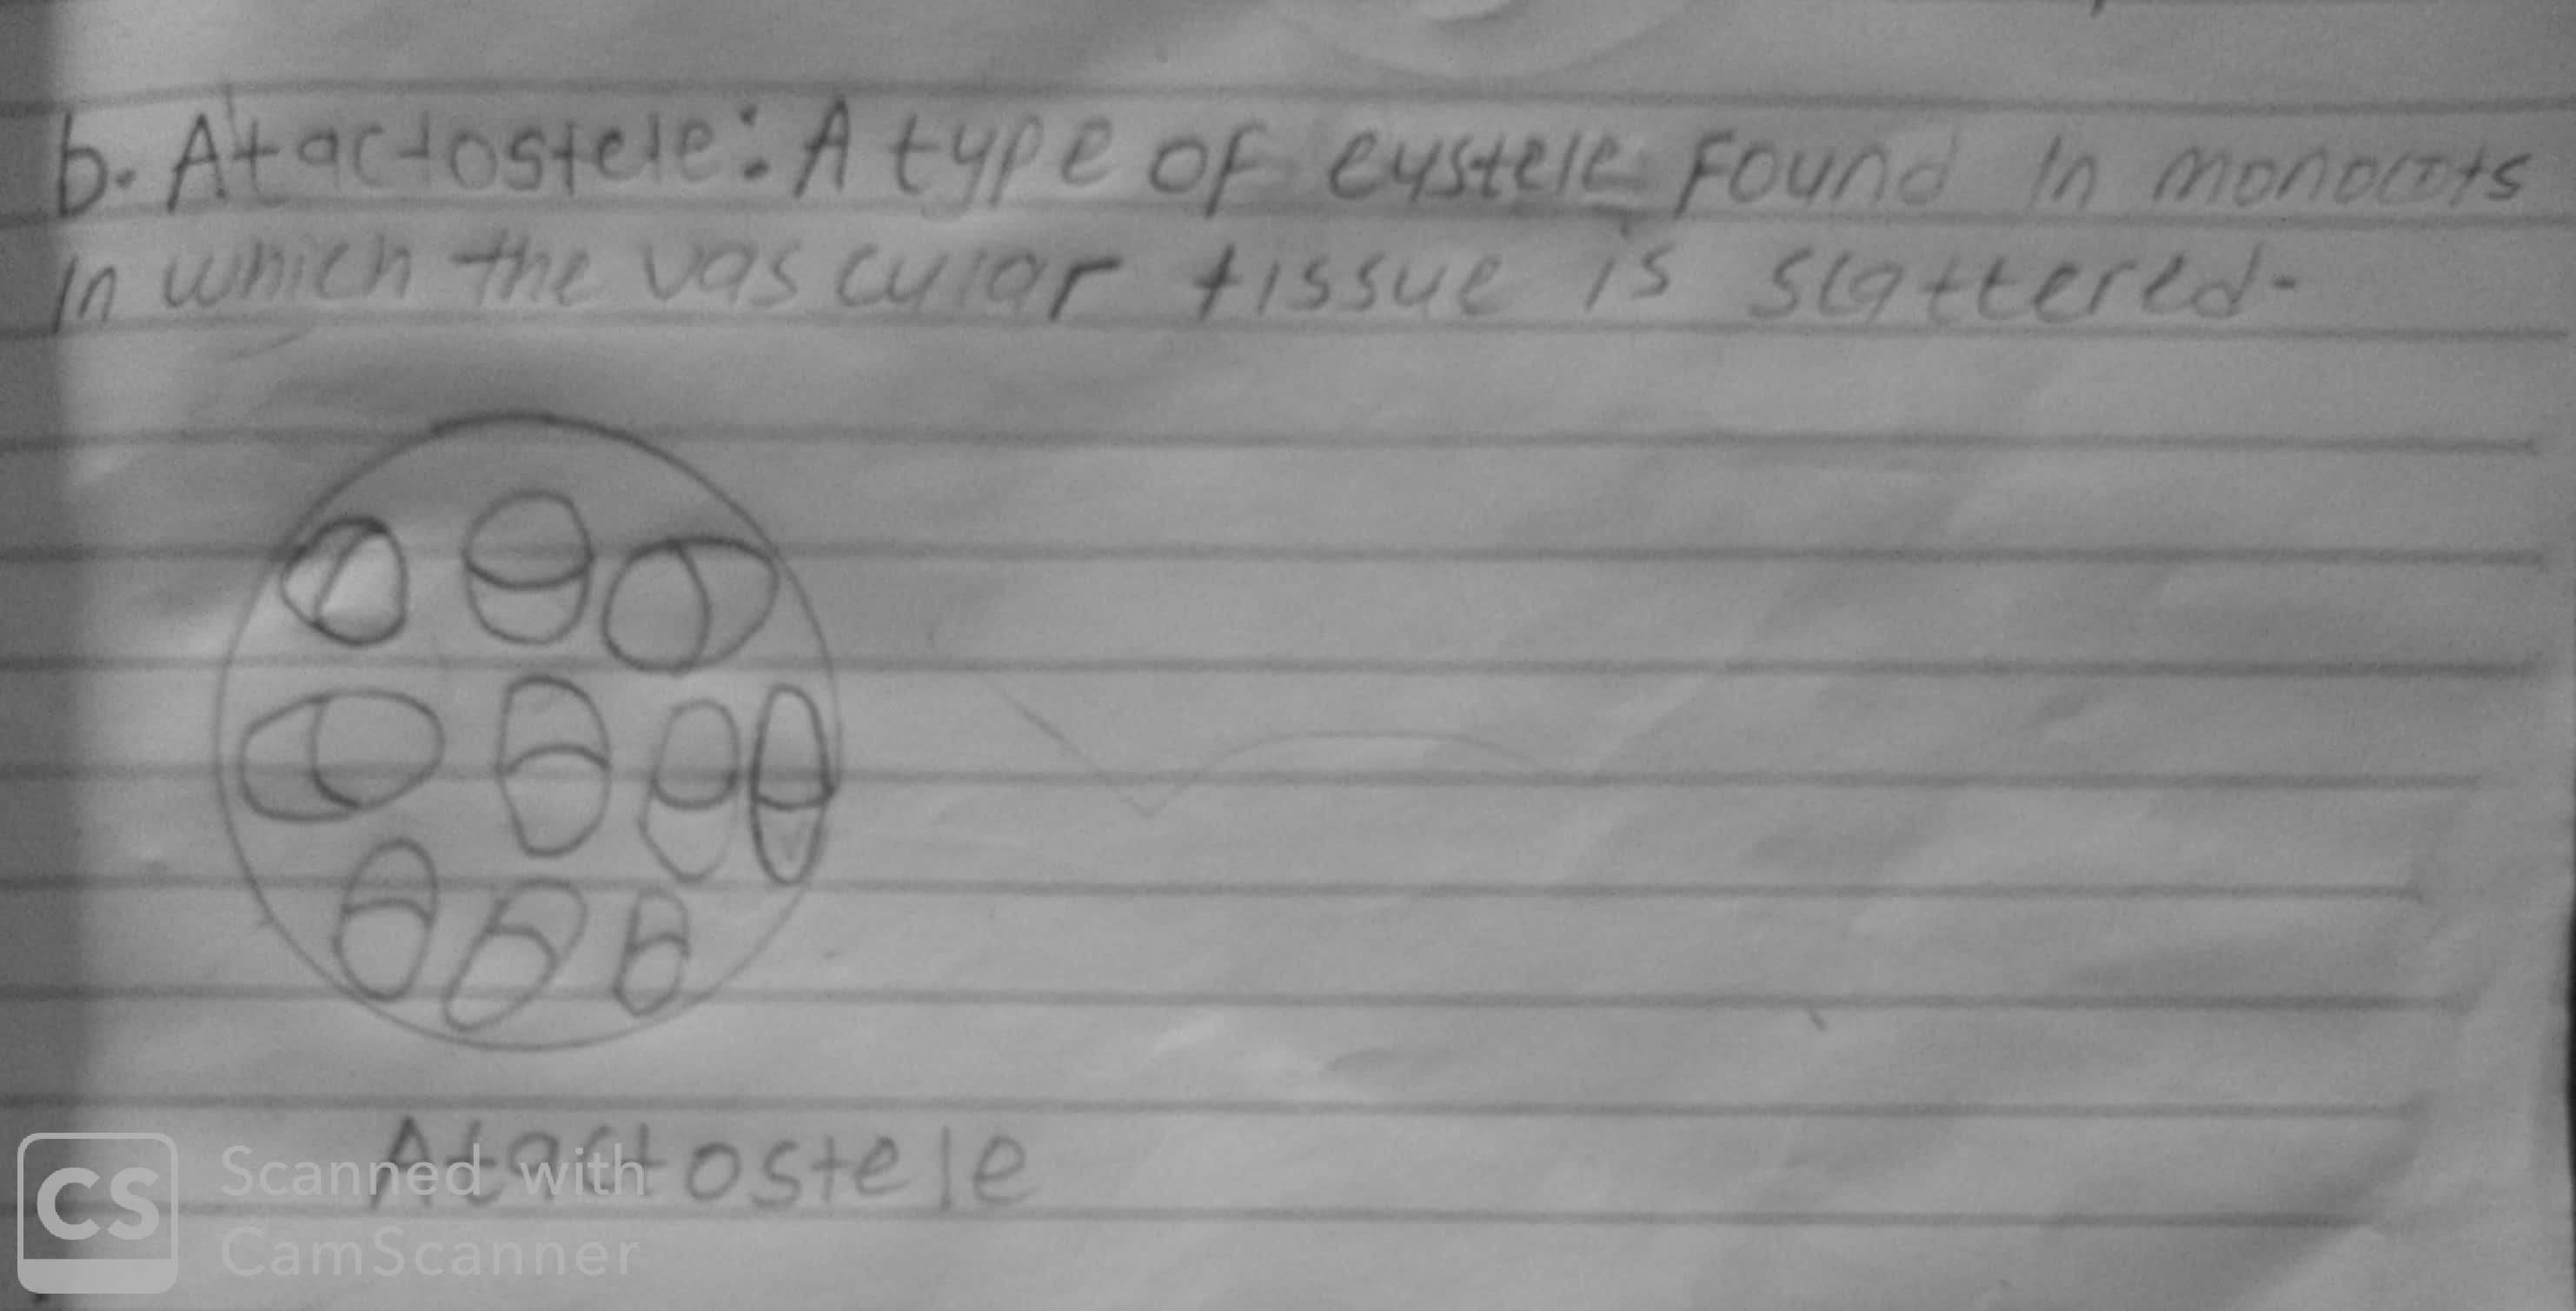 b. Atactostele: A type of eustele found in monocots
in which the vascular tissue is scattered.
Atactostele
CS
Scanned with
CamScanner